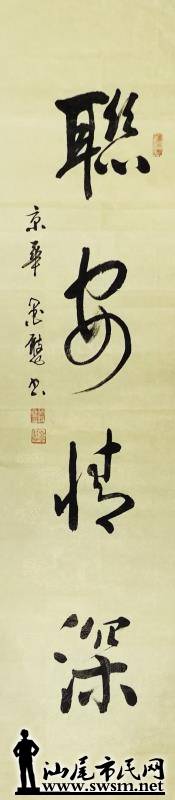 聯安情深
京華
書
汕尾市民网
www.swsm.net